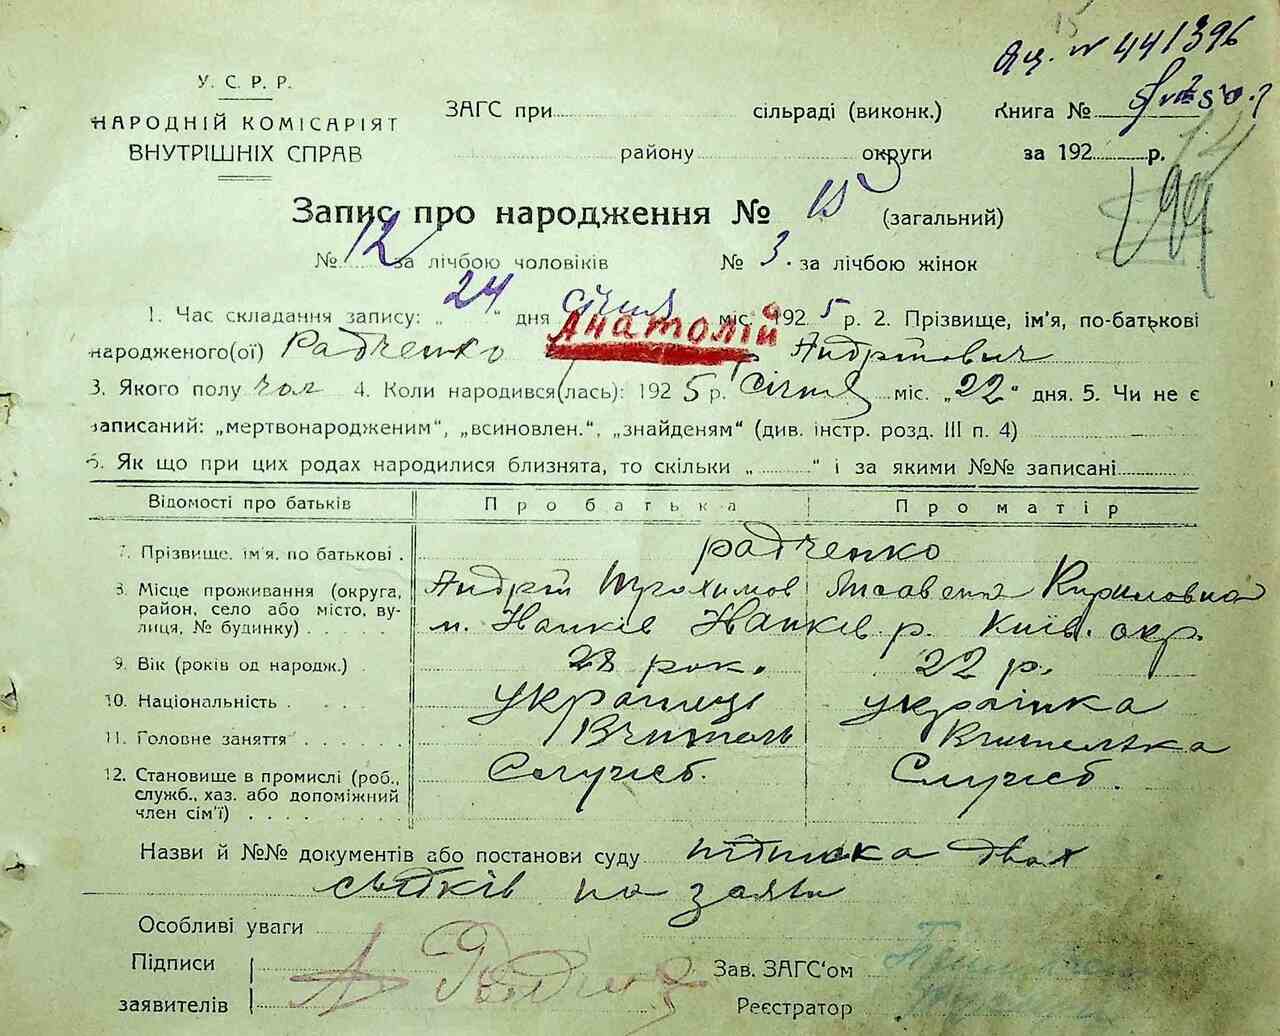 У. С. Р. Р.
НАРОДНІЙ КОМІСАРІЯТ
ВНУТРІШНІХ СПРАВ
№ 441396
ЗАГС при сільраді (виконк.) Книга №
району округи за 192 р.
Запис про народження № 15 (загальний)
№ 12 за лічбою чоловіків № 3. за лічбою жінок
1. Час складання запису: „24“ дня січня міс. 1925 р. 2. Прізвище, ім'я, по-батькові
народженого(ої) Радченко Анатолій Андрійович
3. Якого полу чол 4. Коли народився(лась): 1925 р. січня міс. „22“ дня. 5. Чи не є
записаний: „мертвонародженим“, „всиновлен.“, „знайденям“ (див. інстр. розд. III п. 4)
6. Як що при цих родах народилися близнята, то скільки „ “ і за якими №№ записані
Відомості про батьків Про батька Про матір
7. Прізвище, ім'я, по батькові . Радченко
Андрій Трохимов Лисавета Кириловна
8. Місце проживання (округа, район, село або місто, вулиця, № будинку) м. Р. Київ. окр.
9. Вік (років од народж.) 28 рок. 22 р.
10. Національність українець українка
11. Головне заняття Вчитель Вчителька
12. Становище в промислі (роб., служб., хаз. або допоміжний член сім'ї) Служб. Служб.
Назви й №№ документів або постанови суду підписка двох
свідків по заяві
Особливі уваги
Підписи
заявителів
Зав. ЗАГС‘ом
Реєстратор